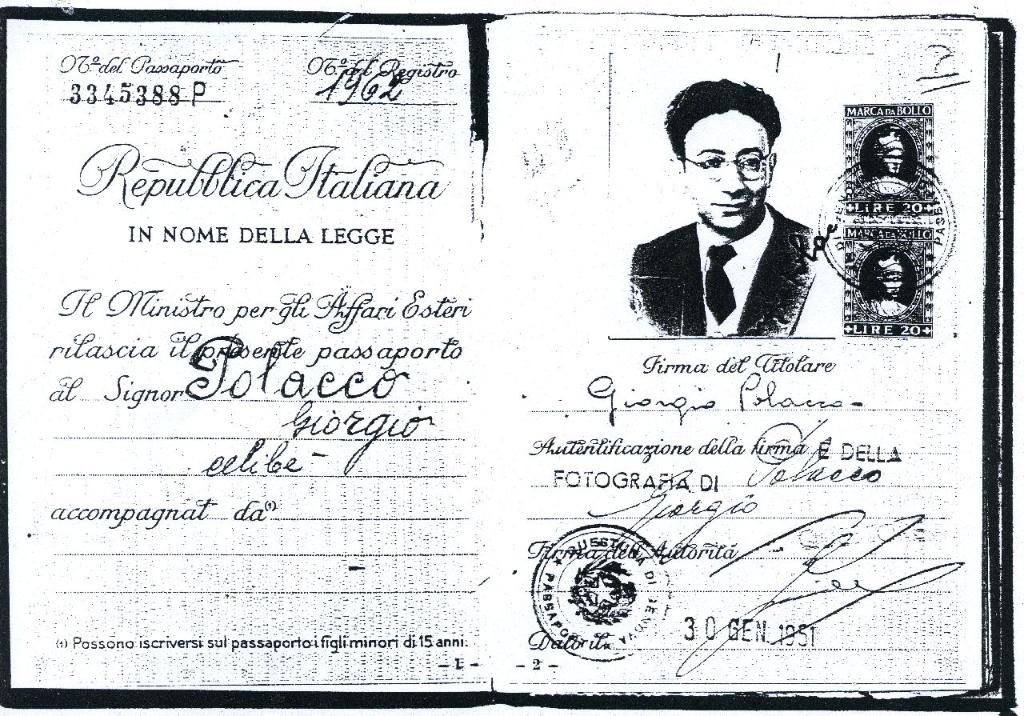 Nº del Passaporto
3345388 P
Nº del Registro
1962
Repubblica Italiana
IN NOME DELLA LEGGE
Il Ministro per gli Affari Esteri
rilascia il presente passaporto
al Signor Polacco
Giorgio
celibe -
accompagnat da (1)
(1) Possono iscriversi sul passaporto i figli minori di 15 anni.
- 1 -
MARCA DA BOLLO
LIRE 20
MARCA DA BOLLO
LIRE 20
Firma del Titolare
Giorgio Polacco
Autentificazione della firma E DELLA
FOTOGRAFIA DI Polacco
Giorgio
Firma dell'Autorità
QUESTURA DI GENOVA
PASSAPORTI
Dato il 30 GEN. 1951
- 2 -